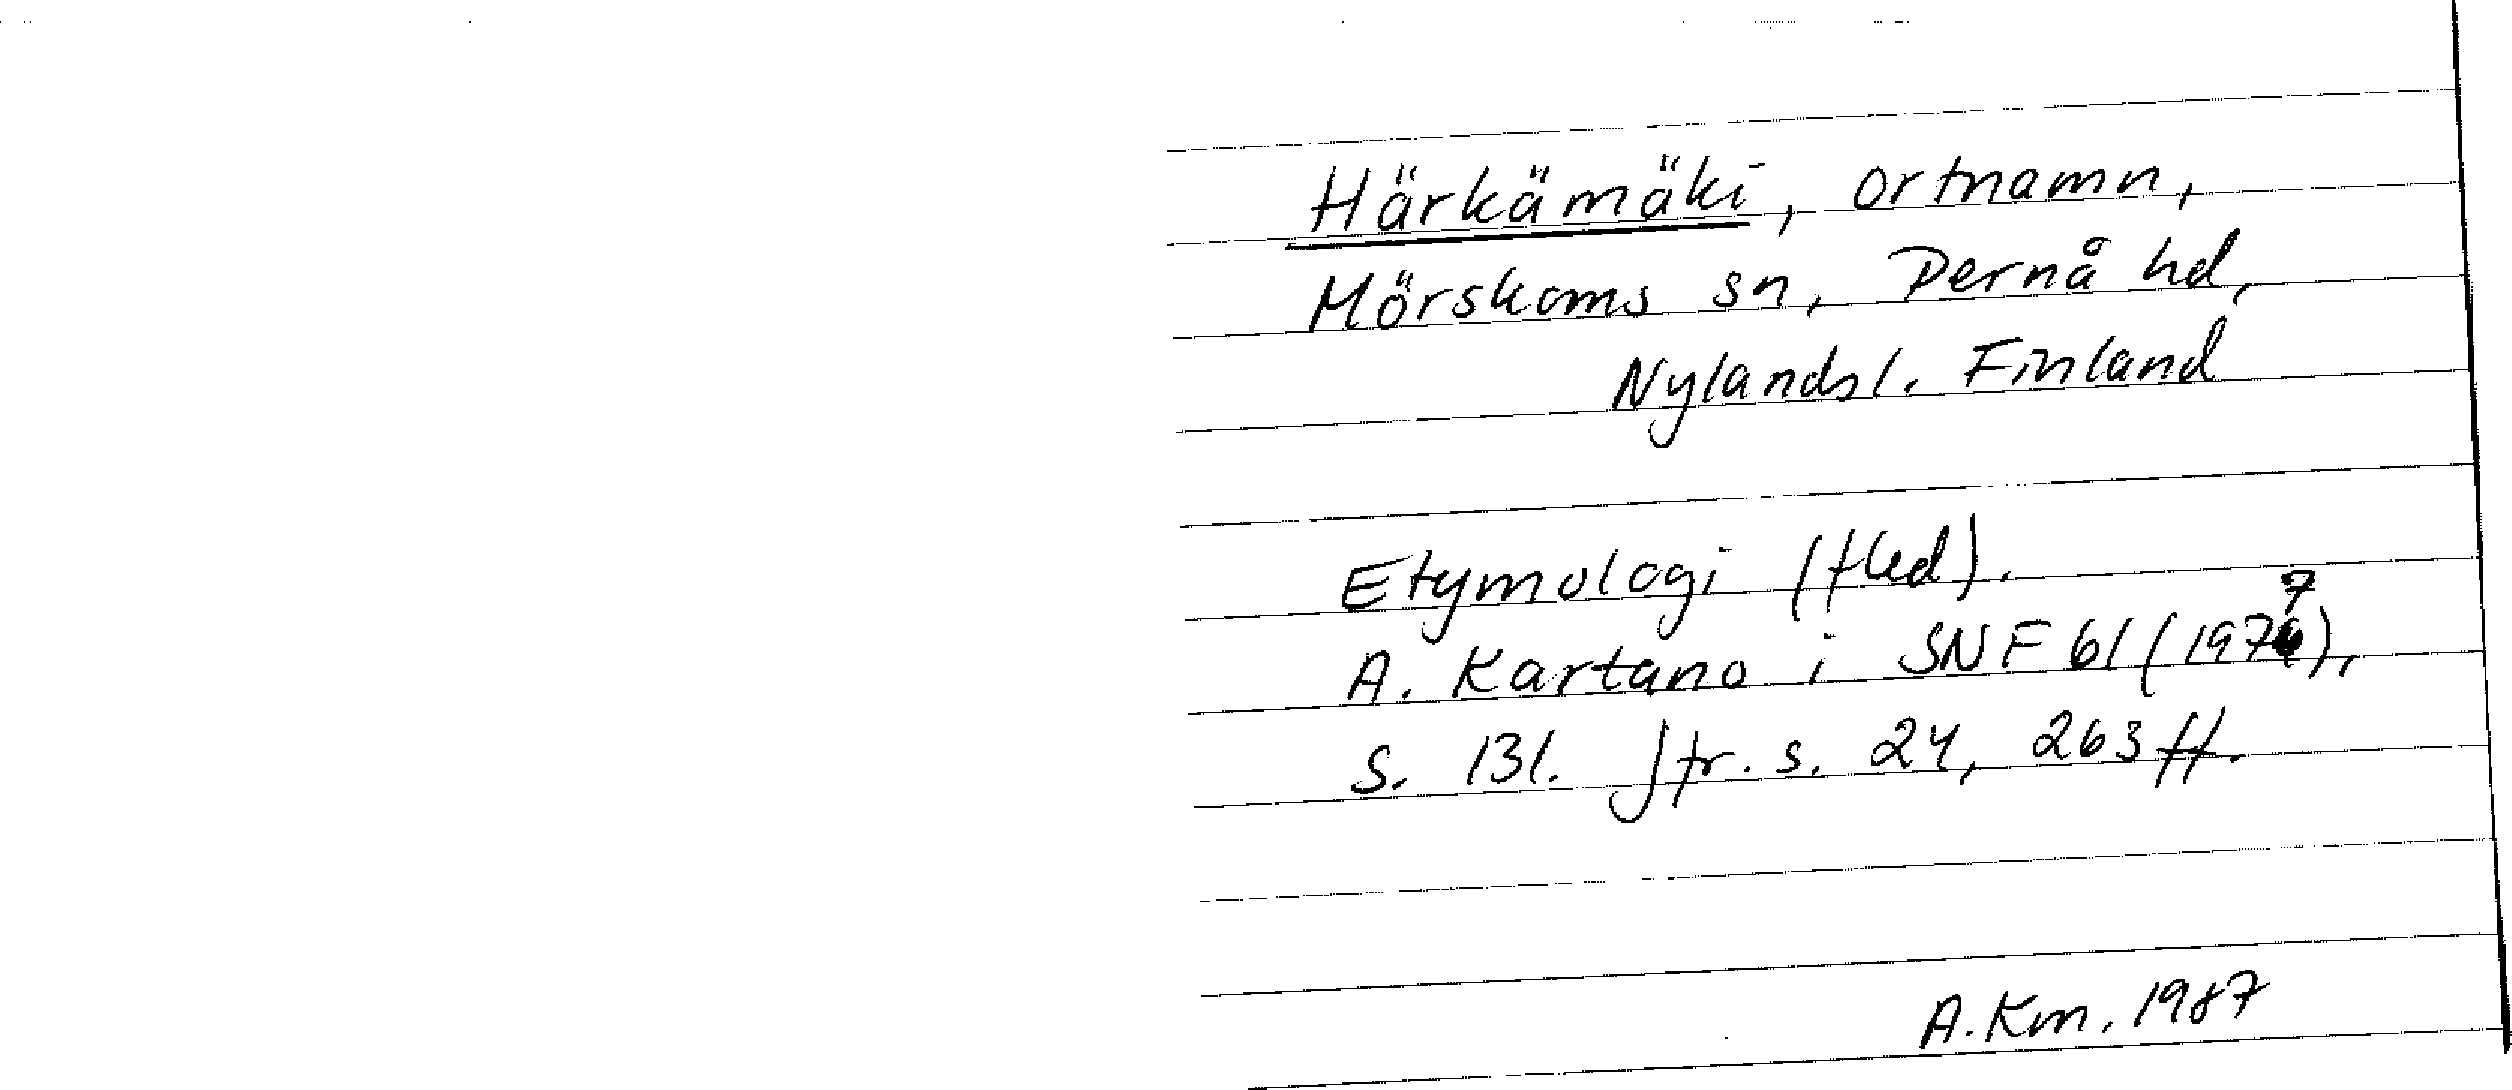 Härkämäki, ortnamn,
Mörskoms sn, Pernå hd,
Nylandsl. Finland
Etymologi (fled).
A. Kartano i SNF 61 (1977),
s. 131. Jfr. s. 24, 263 ff.
A. Km. 1987